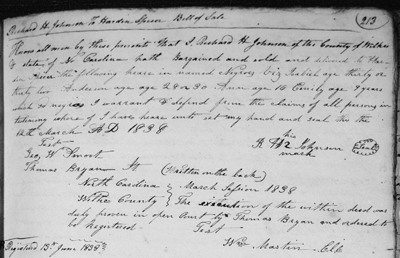 Richard H. Johnson To Harden Spicer Bill of Sale
213
Know all men by these presents That I, Richard H. Johnson of the County of Wilkes
& State of No Carolina hath Bargained and sold and
the following hear in named Negroes Viz age thirty or
thirty two Anderson age 28 or 30 Ann age 16 age 9 years
which negroes I warrant & defend from the claims of all persons in
testimony where of I have hear unto set my hand and seal this the
12th March AD 1838
Test his
Geo. W. Smoot R H Johnson Seal
mark
Thomas Bryan Jt (Written on the back)
North Carolina } March Session 1838
Wilkes County } The execution of the within deed was
duly proven in open Court by Thomas Bryan and ordered to
be Registered Test
Wm Martin Clk
Registered 13th June 1838